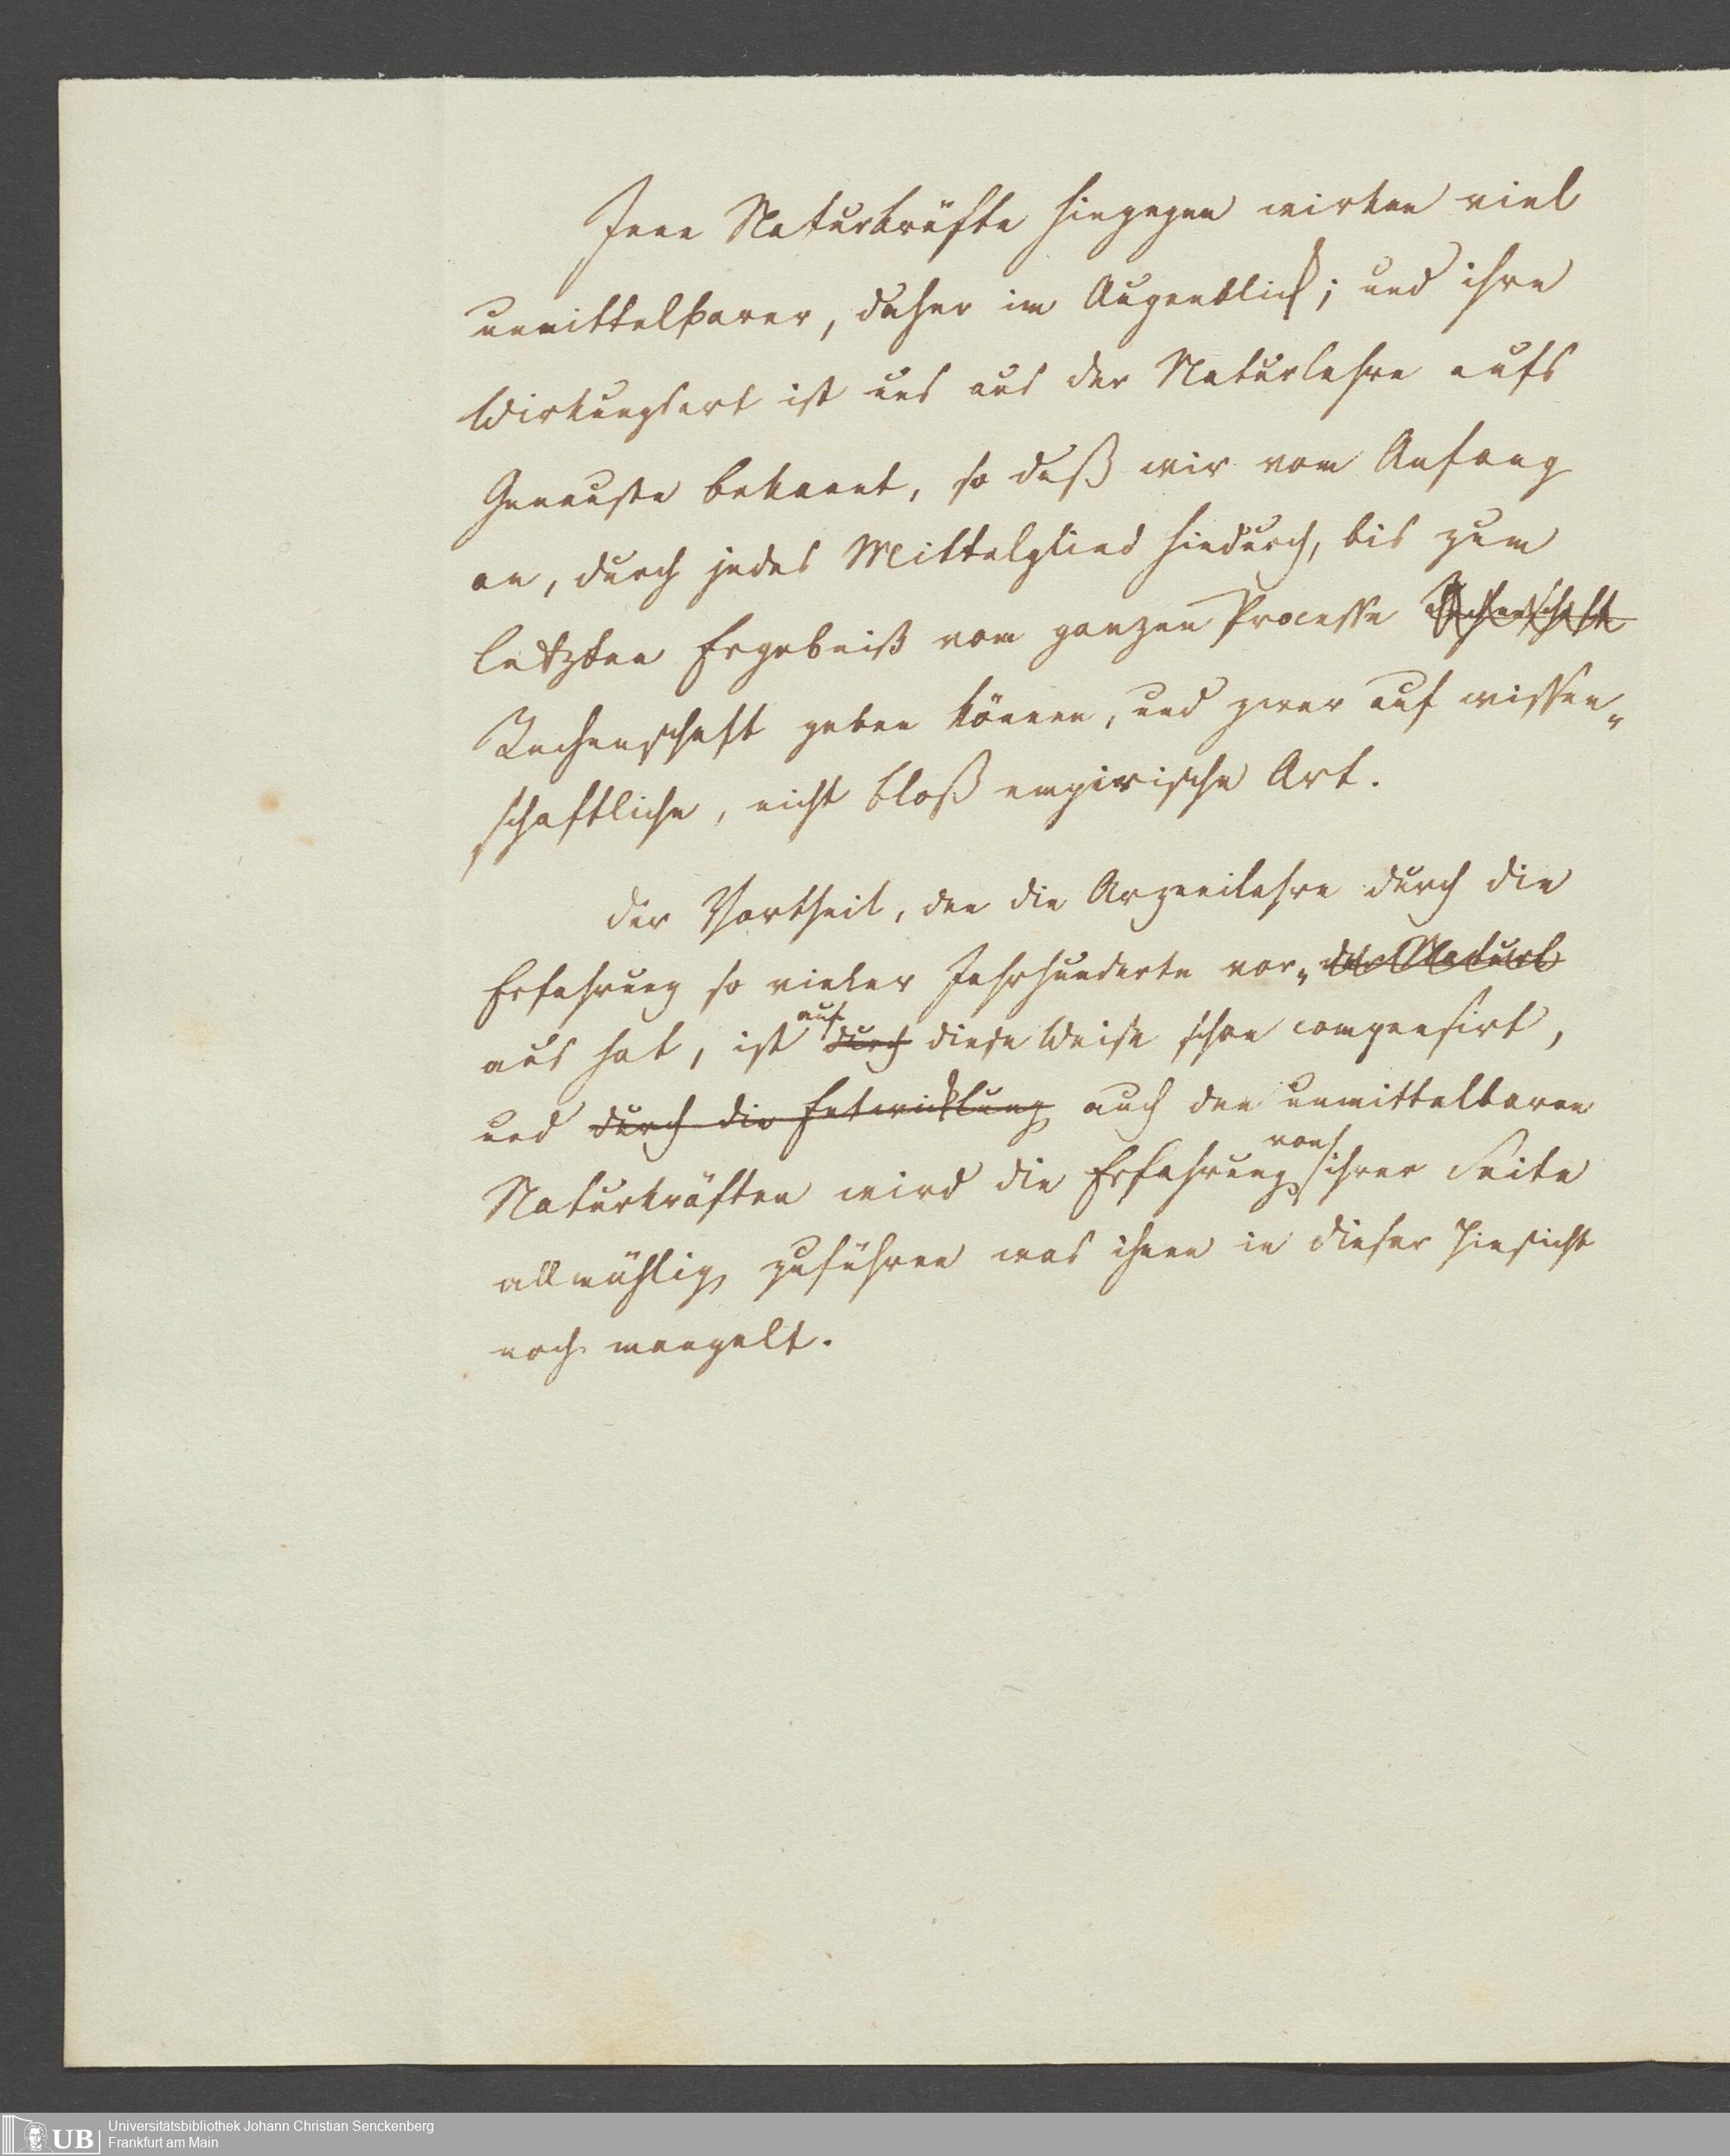 Jene Naturkräfte hingegen wirken viel
unmittelbarer, daher im Augenblick; und ihre
Wirkungsart ist uns aus der Naturlehre aufs
Genauste bekannt, so daß wir vom Anfang
an, durch jedes Mittelglied hindurch, bis zum
letzten Ergebniß vom ganzen Processe
Rechenschaft geben können, und zwar auf wissen„
schaftliche, nicht bloß empirische Art.
Der Vortheil, den die Arzneilehre durch die
Erfahrung so vieler Jahrhunderte vor„ der Naturl
aus hat, ist auf durch diese Weise schon compensirt,
und durch die Entwicklung auch den unmittelbaren
Naturkräften wird die Erfahrung von ihrer Seite
allmählig zuführen was ihnen in dieser Hinsicht
noch mangelt.
UB Universitätsbibliothek Johann Christian Senckenberg
Frankfurt am Main